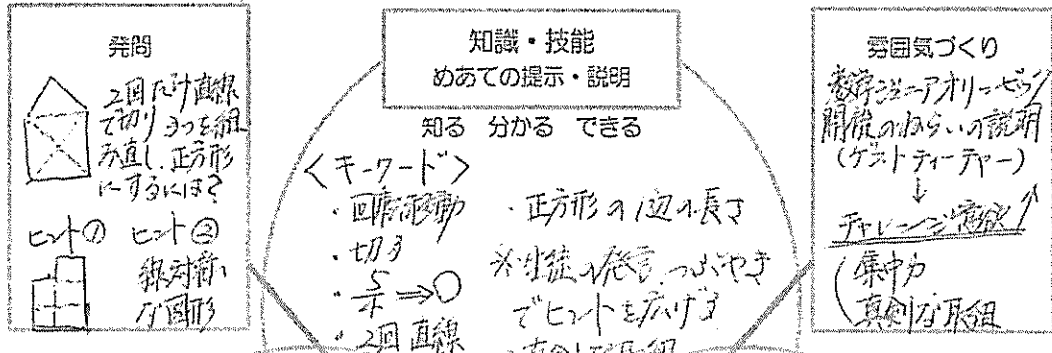 発問
2回だけ直線
で切り 3つを組
み直し、正方形
にするには?
ヒント① ヒント②
線対称
な図形
知識・技能
めあての提示・説明
知る 分かる できる
<キーワード>
・回転移動
・切る
・2回 直線
・正方形の1辺の長さ
※生徒の発言、つぶやき
でヒントを広げる
雰囲気づくり
数学ジュニアオリーンピック
開催のねらいの説明
(ゲストティーチャー)
↓
チャレンジ意欲↑
集中力
真剣な取組